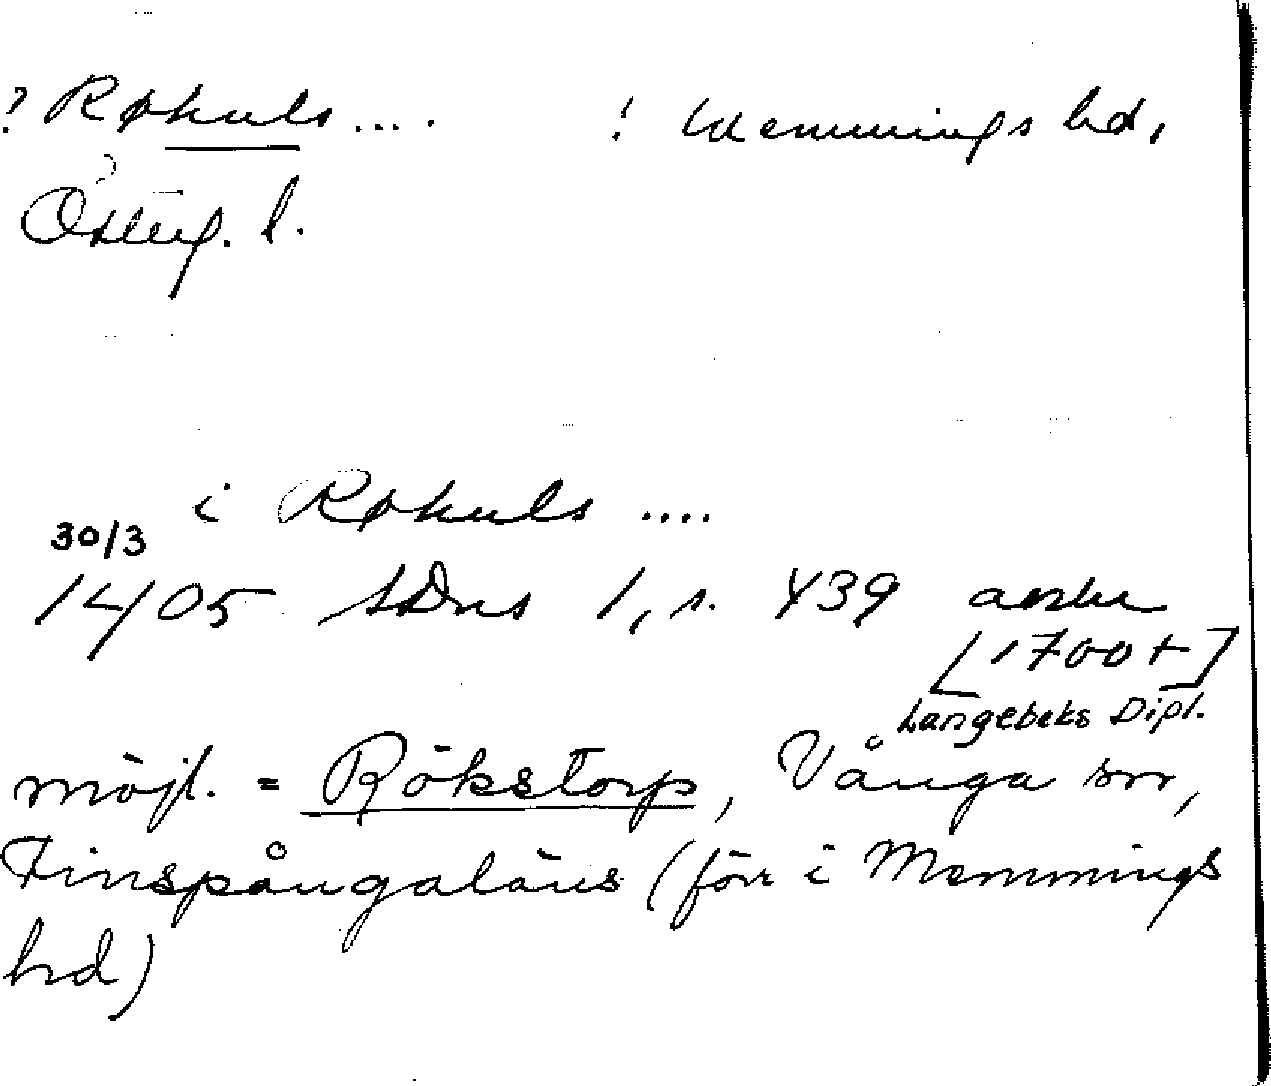 ? Røkuls.... ! Memmings hd,
Österg. l.
i Røkuls ....
30/3
1405 SDns 1, s. 439 avskr
[1700 t]
Langebeks Dipl.
möjl. = Rökstorp, Vånga sn,
Finspångaläns (förr i Memmings
hd)